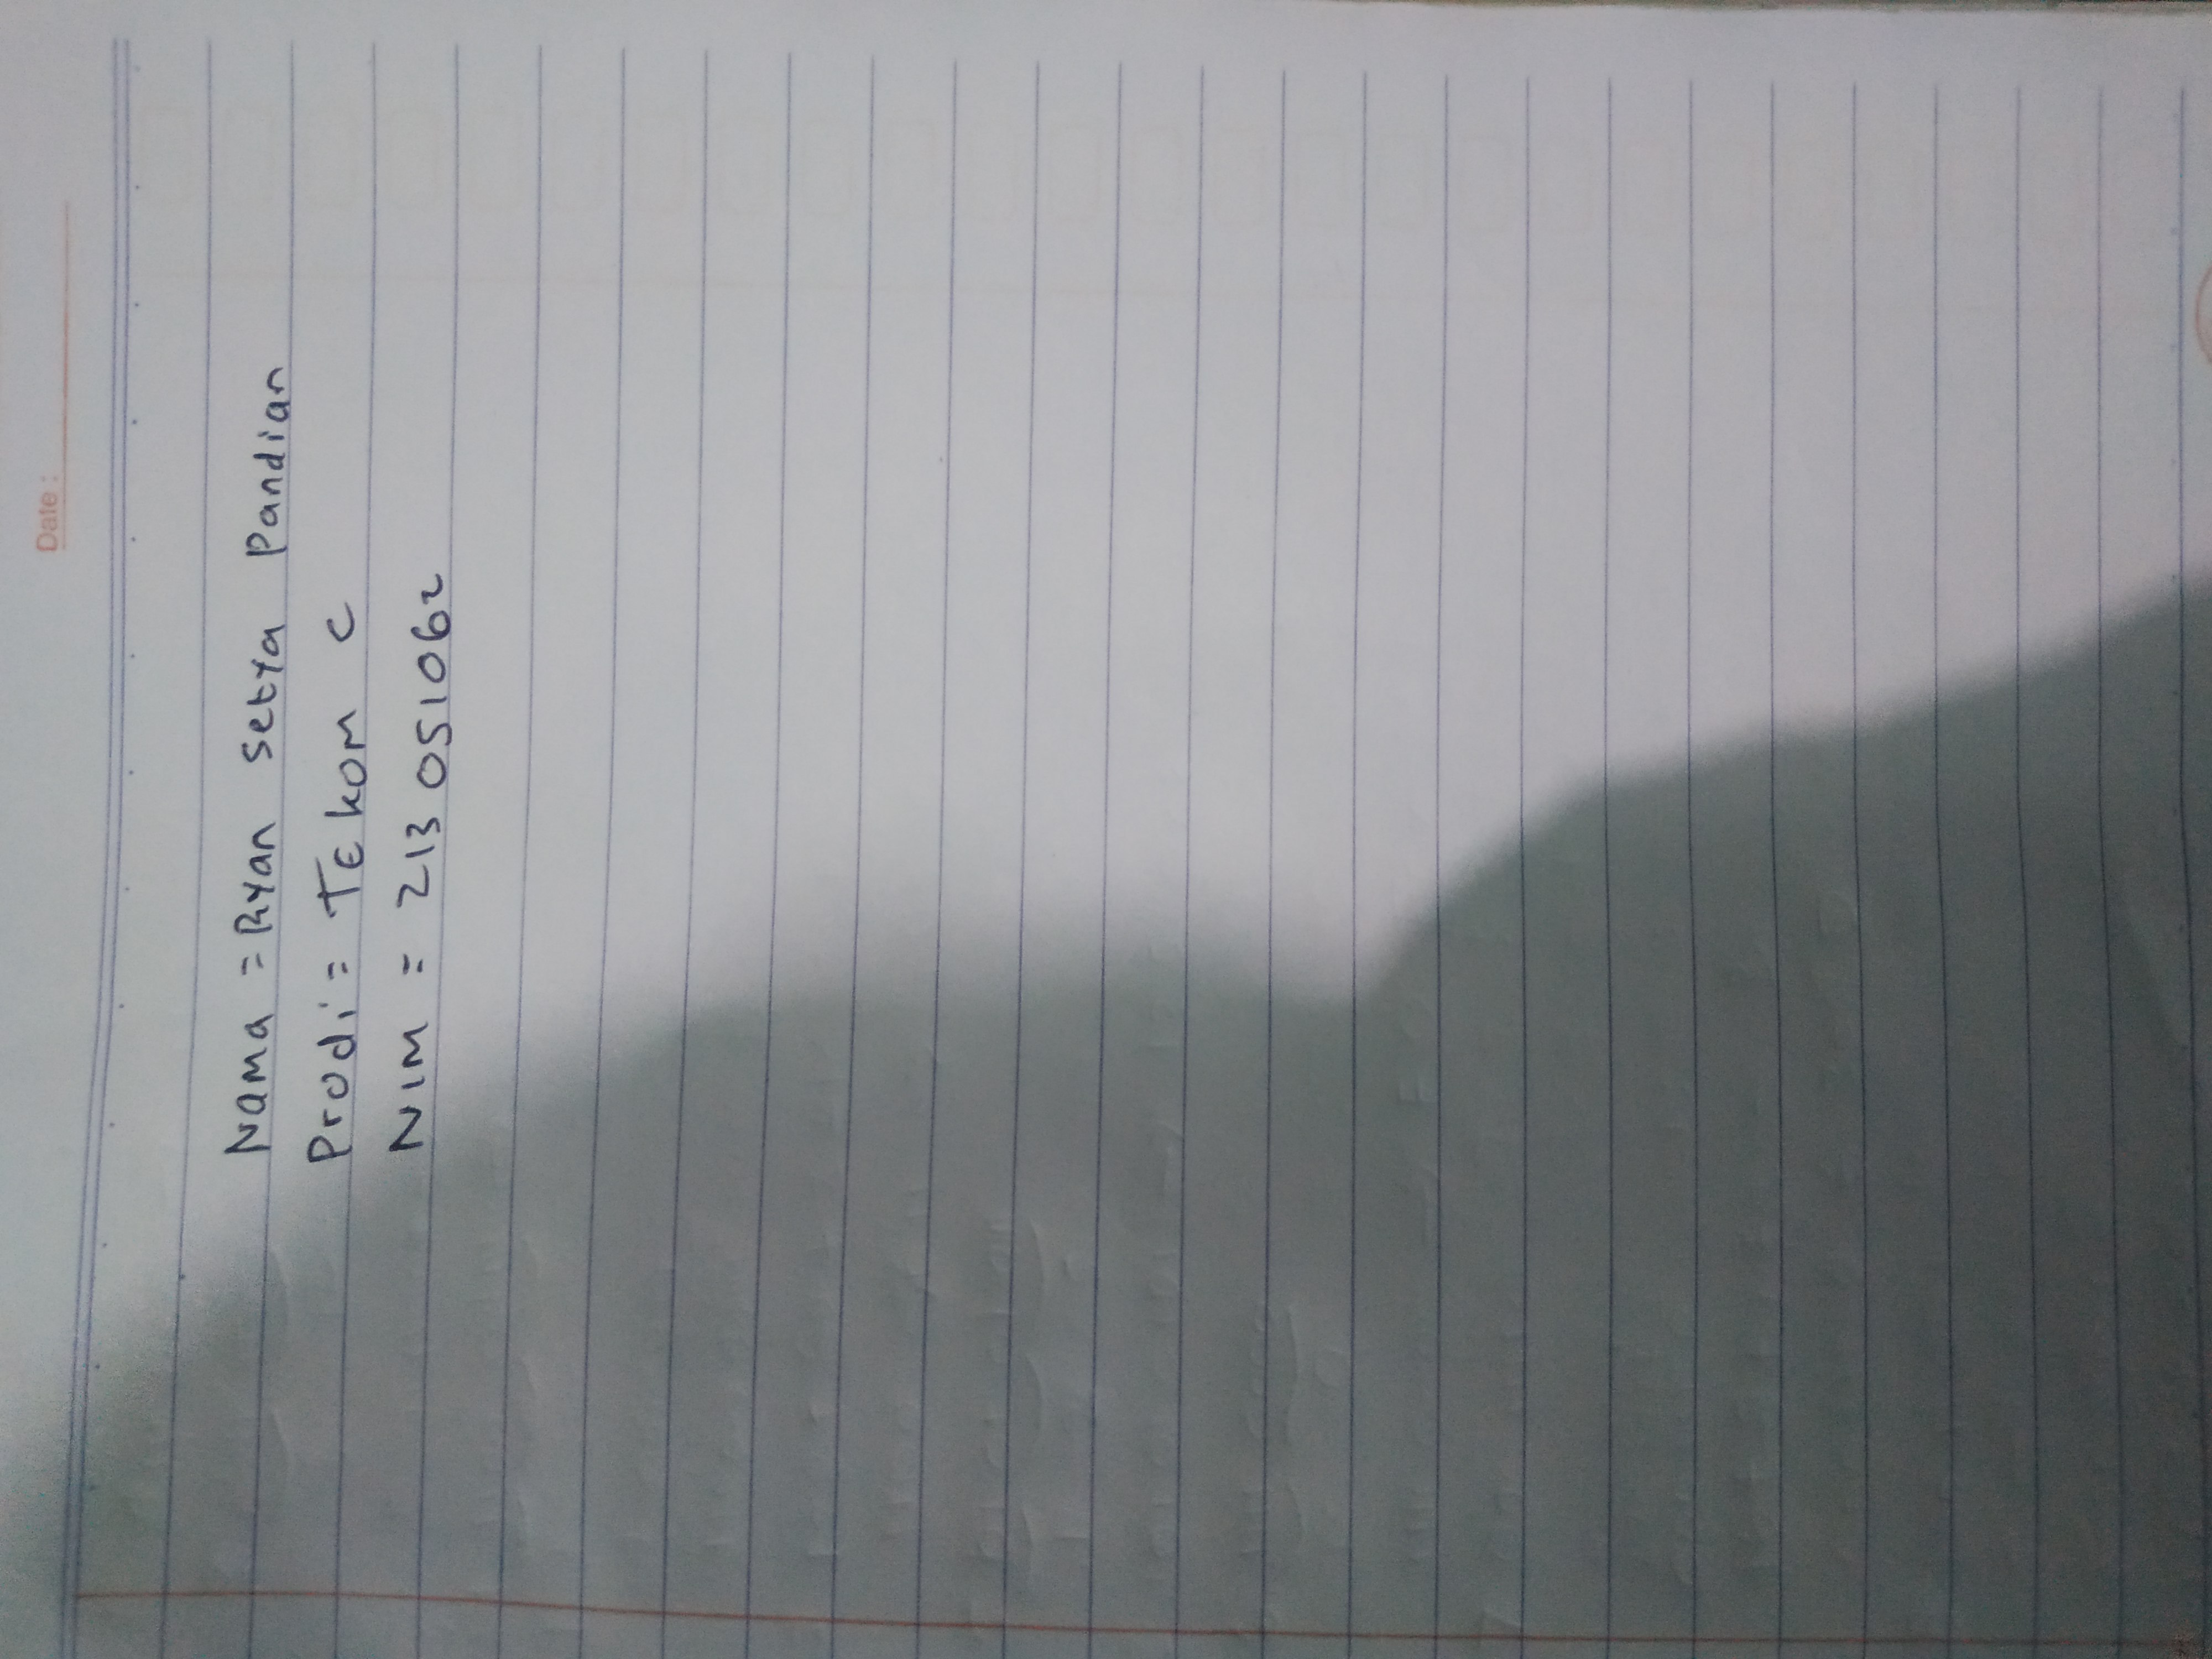 Date :
Nama = Ryan setya Pandian
Prodi = TEkom C
NIM = 213 051062